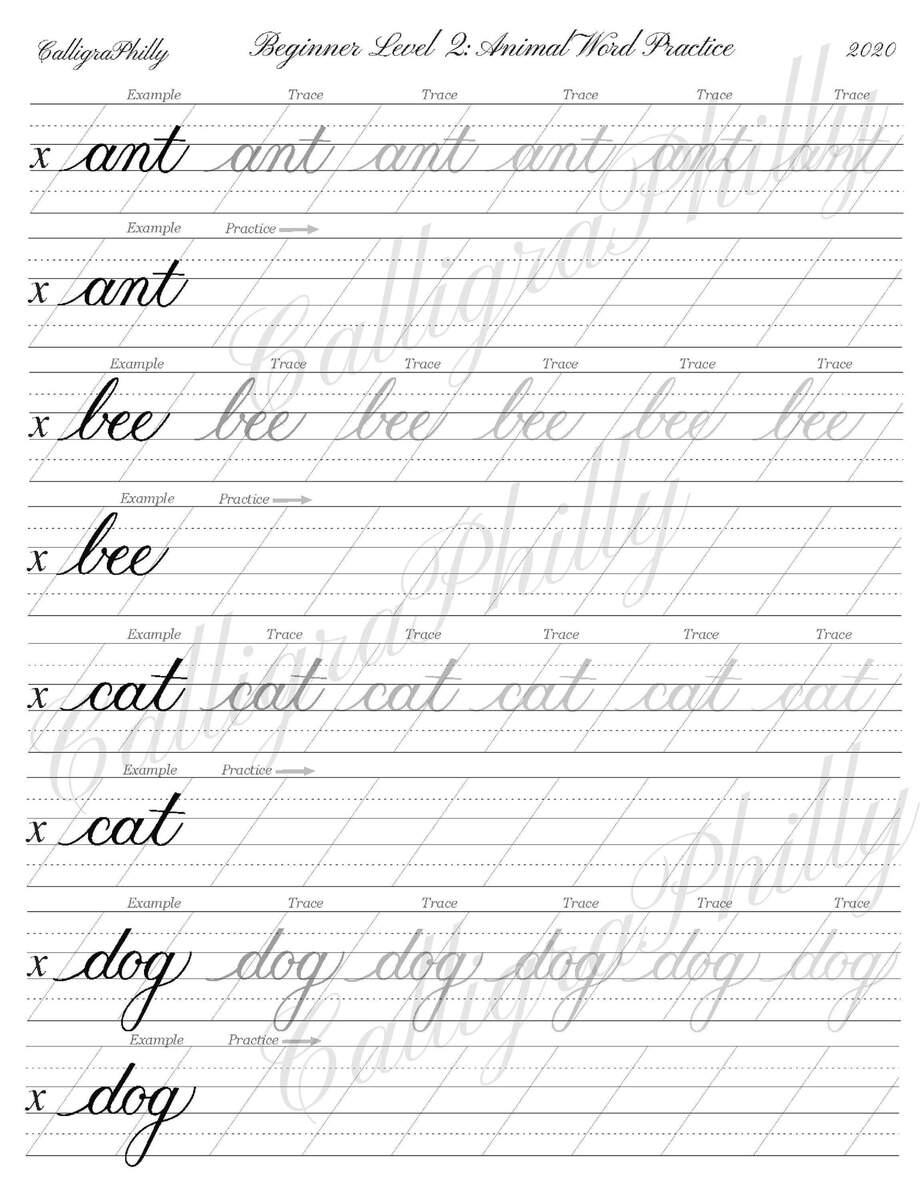 CalligraPhilly Beginner Level 2: Animal Word Practice 2020
Example Trace Trace Trace Trace Trace
x ant ant ant ant ant ant
Example Practice
x ant
Example Trace Trace Trace Trace Trace
x bee bee bee bee bee bee
Example Practice
x bee
Example Trace Trace Trace Trace Trace
x cat cat cat cat cat cat
Example Practice
x cat
Example Trace Trace Trace Trace Trace
x dog dog dog dog dog dog
Example Practice
x dog
CalligraPhilly
CalligraPhilly
CalligraPhilly